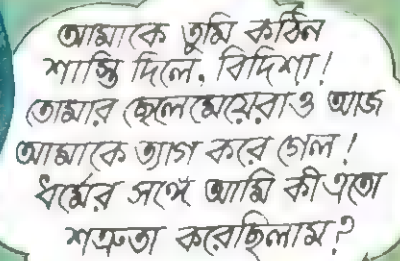 আমাকে তুমি কঠিন
শাস্তি দিলে, বিদিশা!
তোমার ছেলেমেয়েরাও আজ
আমাকে ত্যাগ করে গেল!
ধর্মের সঙ্গে আমি কী এতো
শত্রুতা করেছিলাম?